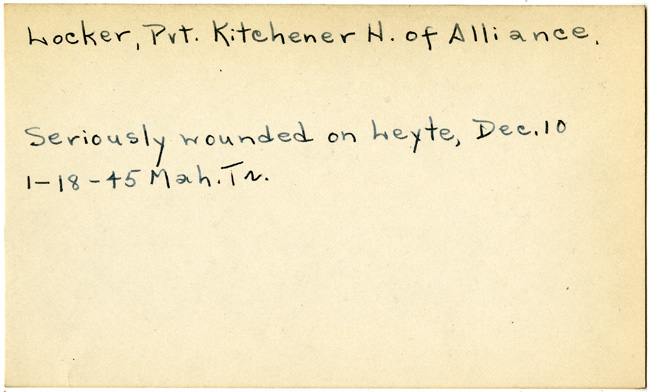 Locker, Pvt. Kitchener H. of Alliance.
Seriously wounded on Leyte, Dec. 10
1-18-45 Mah. Tr.